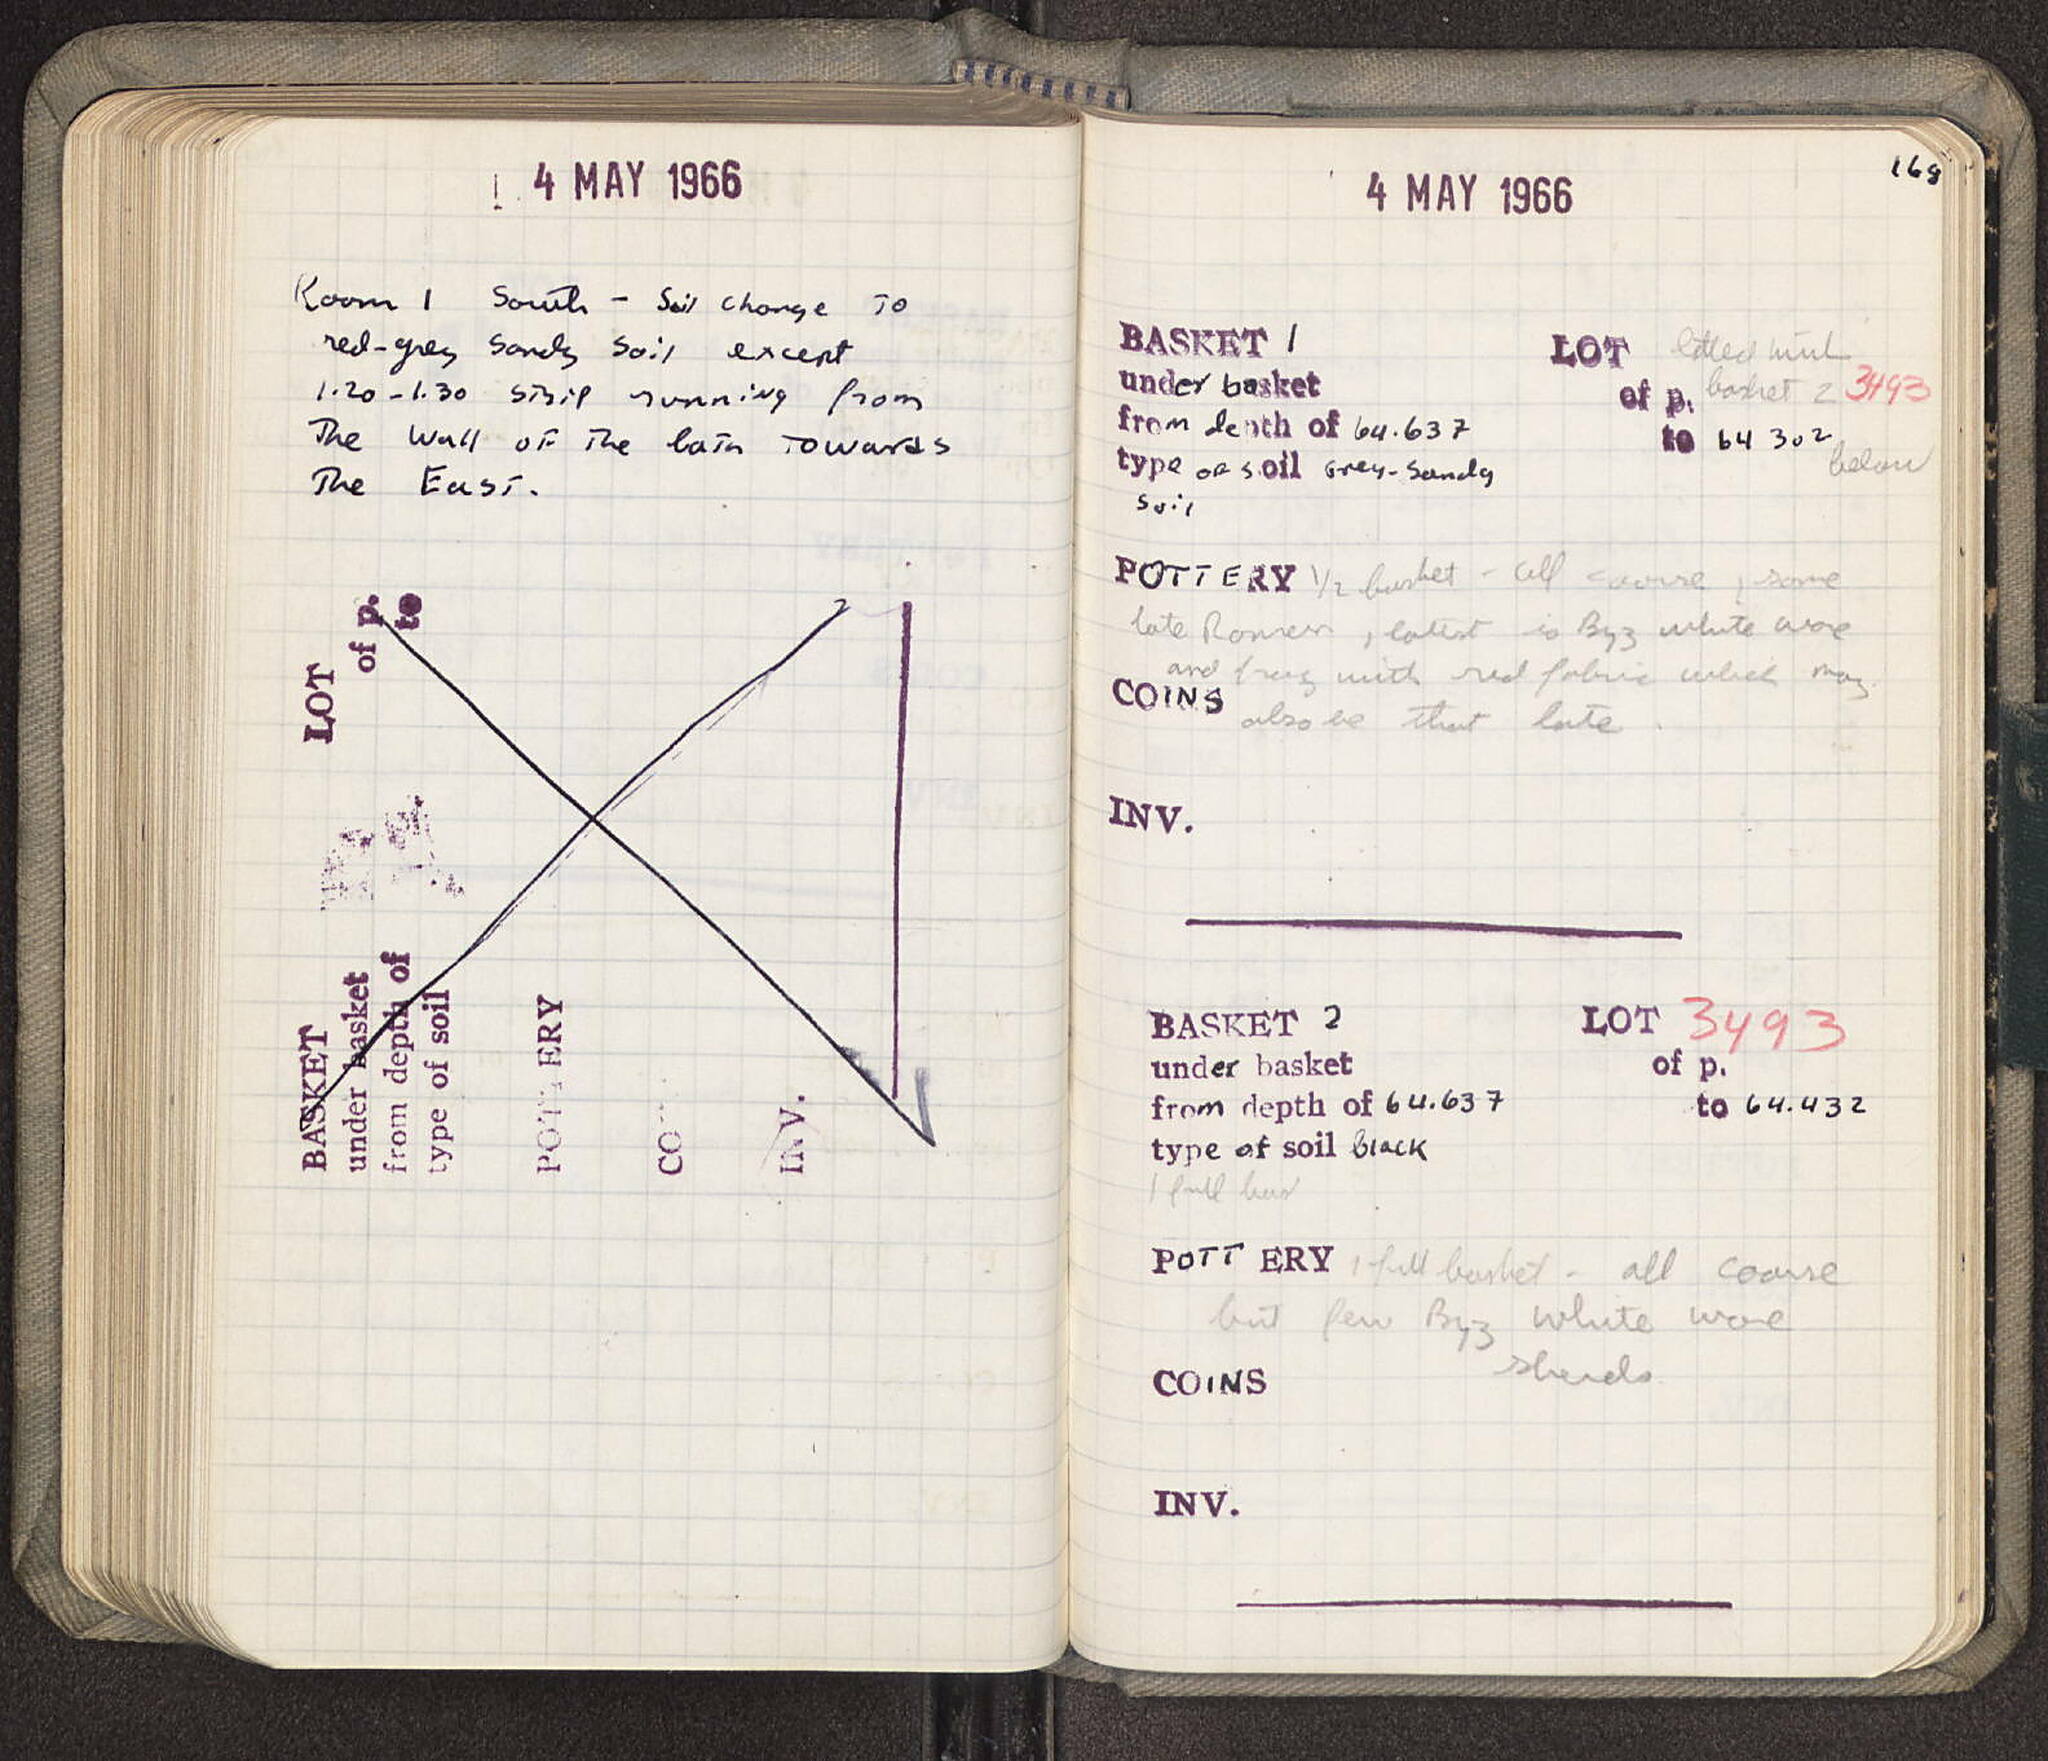 4 MAY 1966
Room 1 South - Soil change to
red-grey sandy soil except
1.20-1.30 strip running from
The wall of The bath Towards
The East.
LOT
of p.
to
BASKET
under basket
from depth of
type of soil
POTTERY
CO
INV.
4 MAY 1966
168
BASKET 1
LOT lotted with
under basket
of p. basket 2 3493
from depth of 64.637
to 64 302
below
type of soil Grey-Sandy
soil
POTTERY 1/2 basket - all coarse, some
late Roman, latest is Byz white ware
and frag with red fabric which may
COINS
also be that late.
INV.
BASKET 2
LOT 3493
under basket
of p.
from depth of 64.637
to 64.432
type of soil black
1 full bas
POTTERY 1 full basket - all coarse
but few Byz white ware
sherds
COINS
INV.